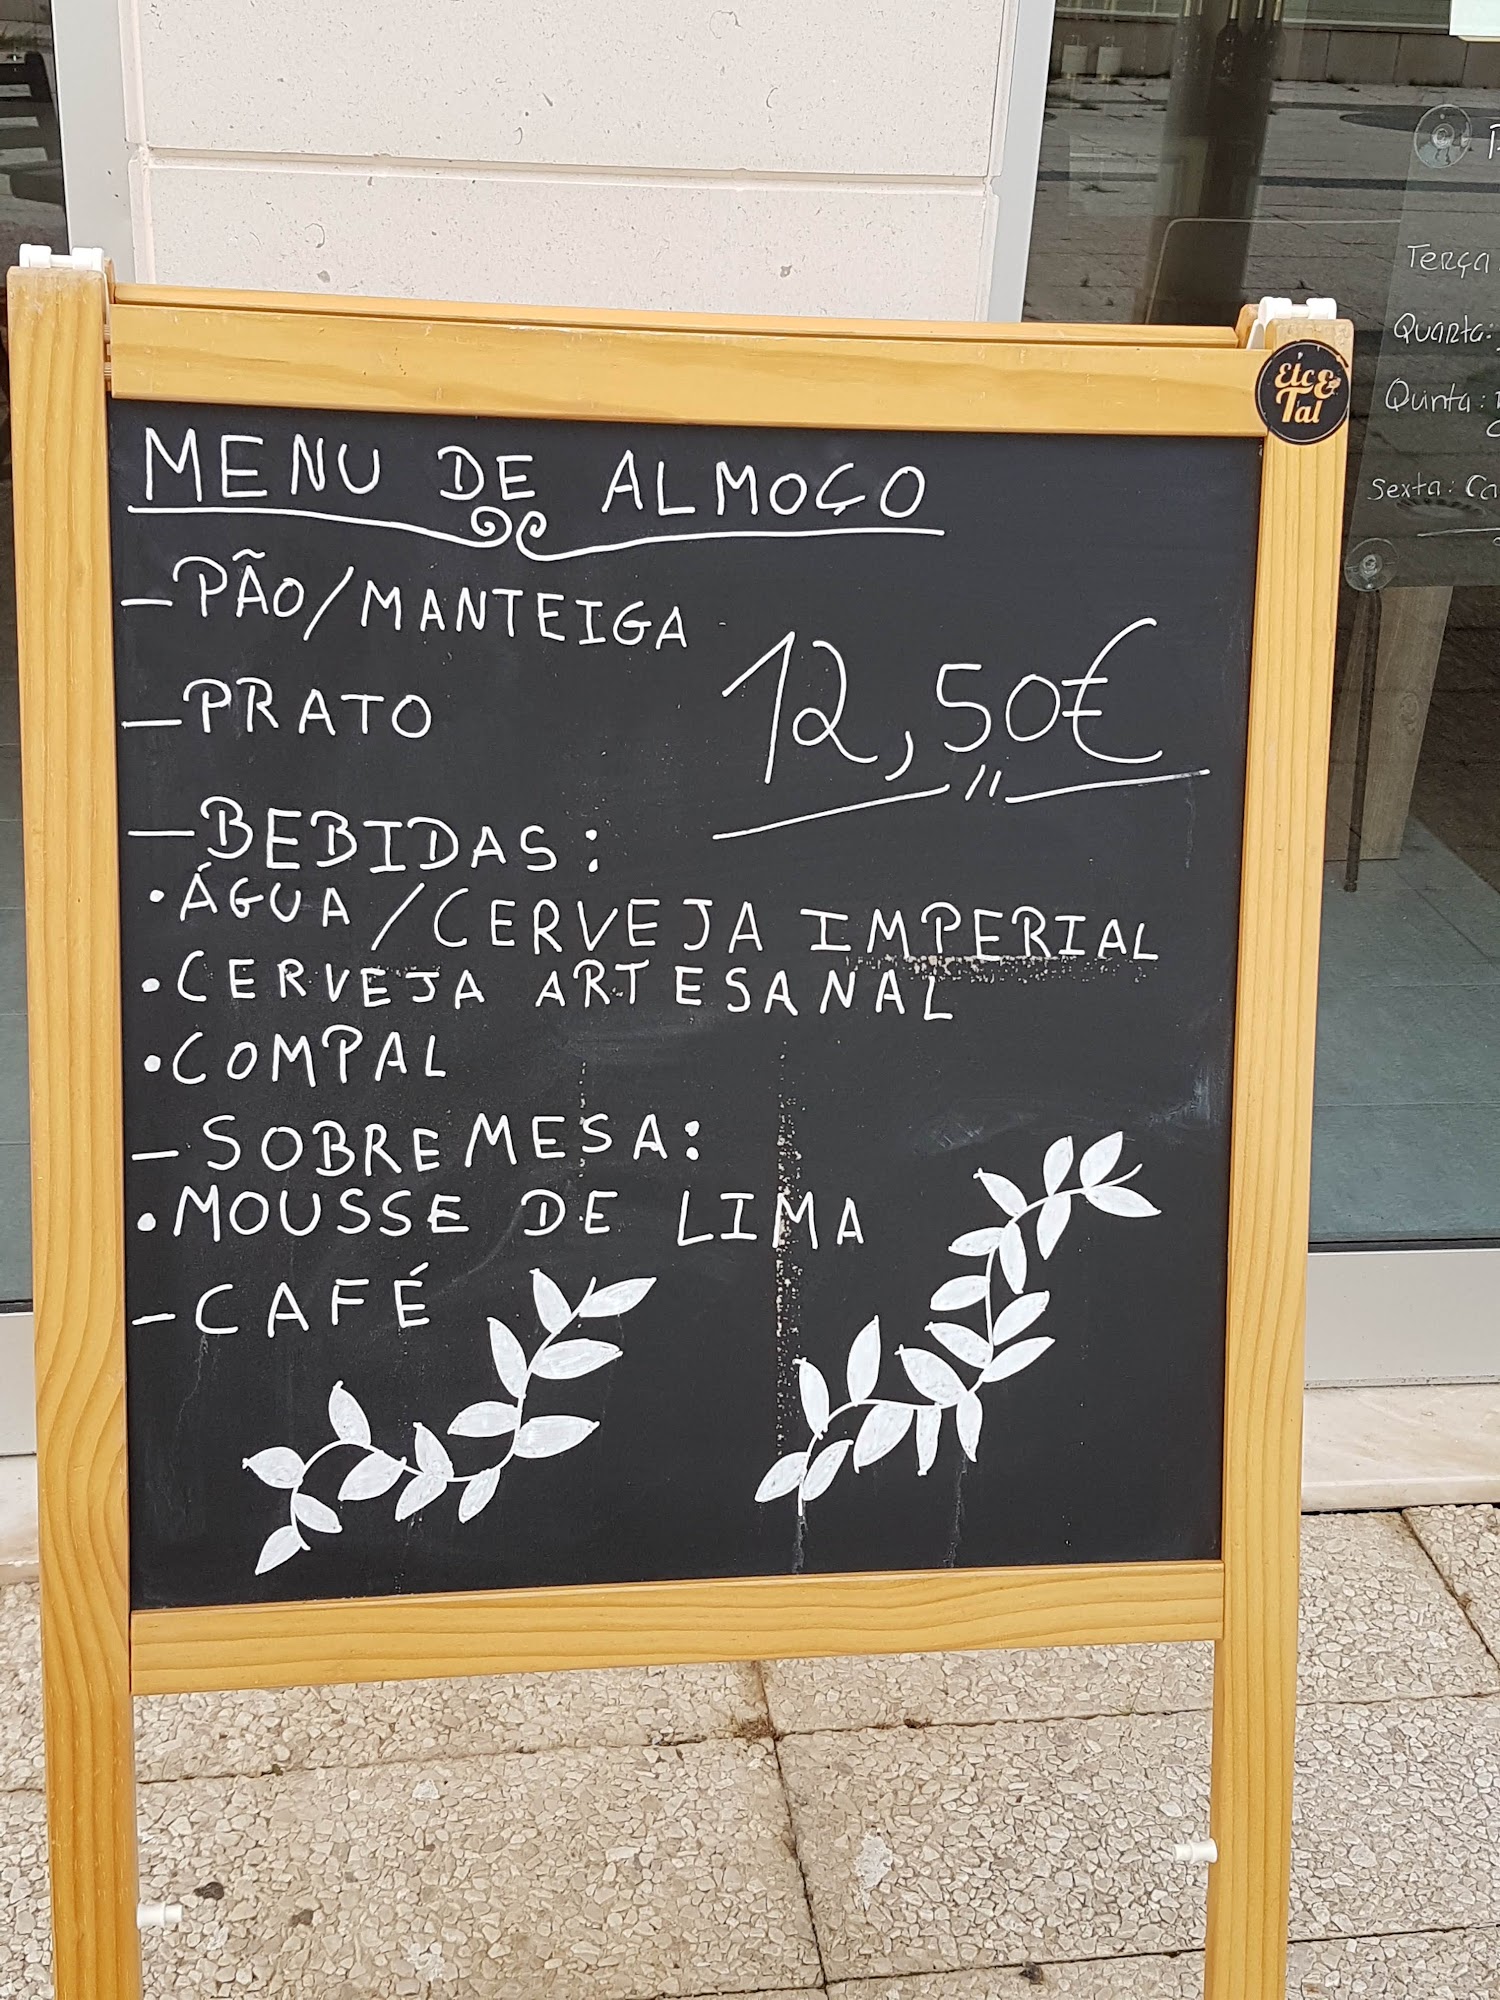 MENU DE ALMOÇO
- PÃO/MANTEIGA
- PRATO
12,50€
- BEBIDAS:
• ÁGUA / CERVEJA IMPERIAL
• CERVEJA ARTESANAL
• COMPAL
- SOBREMESA:
• MOUSSE DE LIMA
- CAFÉ
Etc&
Tal
Terça
Quarta:
Quinta:
Sexta: